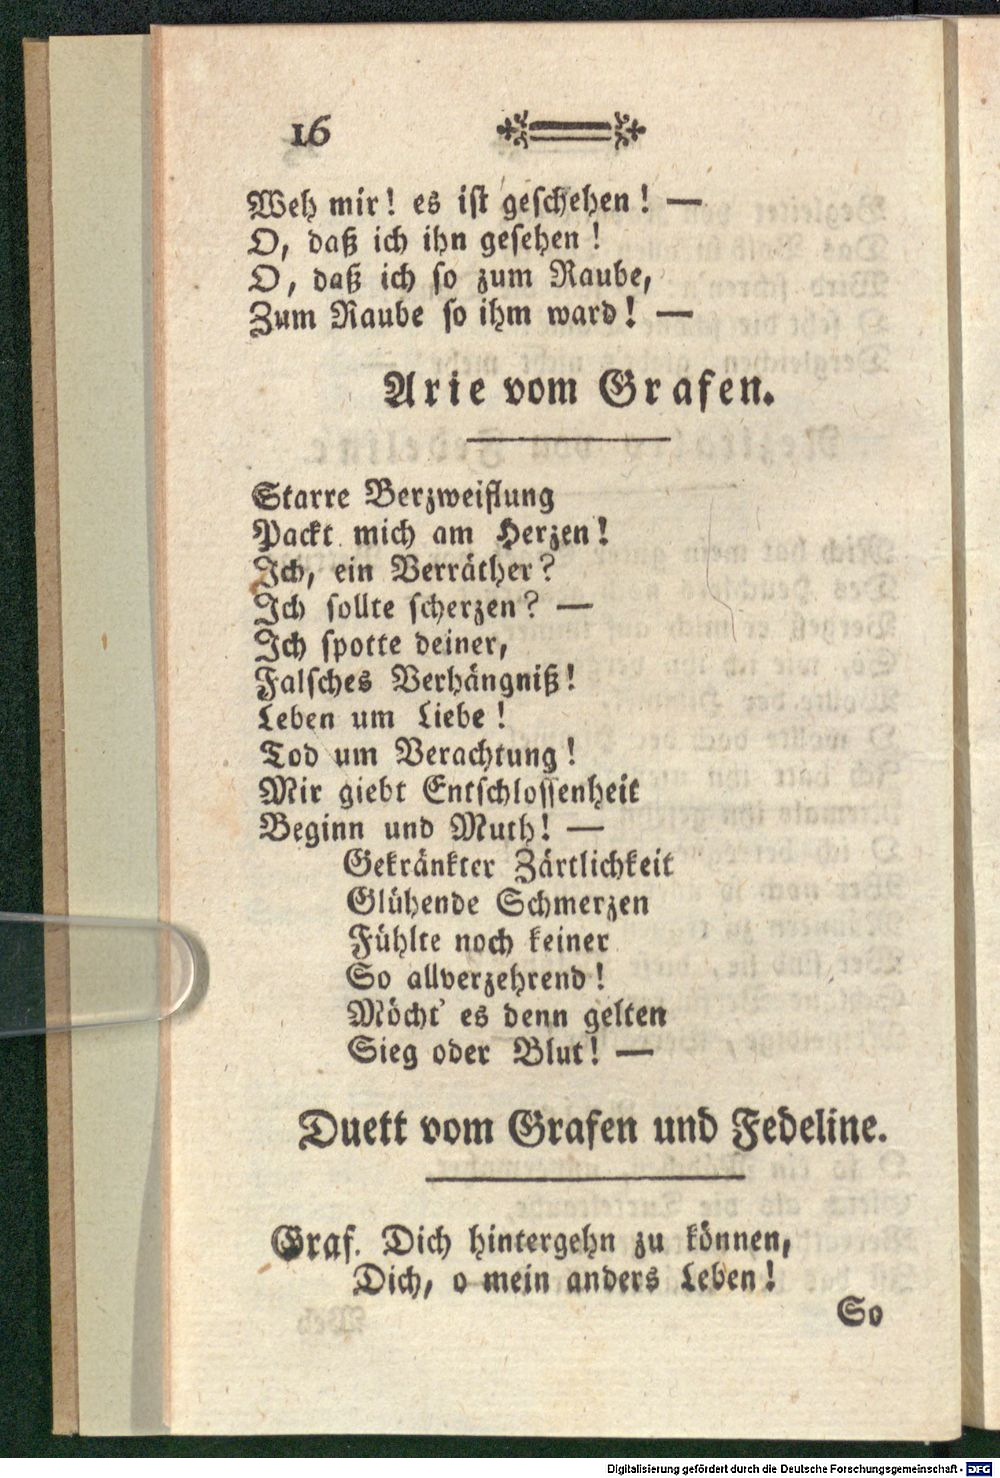 16
Weh mir! es ist geschehen! —
O, daß ich ihn gesehen!
O, daß ich so zum Raube,
Zum Raube so ihm ward! —
Arie vom Grafen.
Starre Verzweiflung
Packt mich am Herzen!
Ich, ein Verräther?
Ich sollte scherzen? —
Ich spotte deiner,
Falsches Verhängniß!
Leben um Liebe!
Tod um Verachtung!
Mir giebt Entschlossenheit
Beginn und Muth! —
Gekränkter Zärtlichkeit
Glühende Schmerzen
Fühlte noch keiner
So allverzehrend!
Möcht' es denn gelten
Sieg oder Blut! —
Duett vom Grafen und Fedeline.
Graf. Dich hintergehn zu können,
Dich, o mein anders Leben!
So
Digitalisierung gefördert durch die Deutsche Forschungsgemeinschaft - DFG